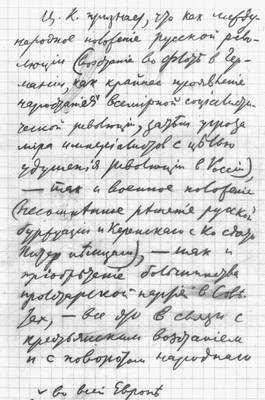 Ц. К. признает, что как между-
народное положение русской рево-
люции (восстание во флоте в Гер-
мании, как крайнее проявление
нарастания всемирной социалисти-
ческой революции, затем угроза
мира империалистов с целью
удушения революции в России),
— так и военное положение
(несомненное решение русской
буржуазии и Керенского с Кo сдать
Питер немцам), — так и
приобретение большинства
пролетарской партией в Сове-
тах, — все это в связи с
крестьянским восстанием
и с поворотом народного
во всей Европе